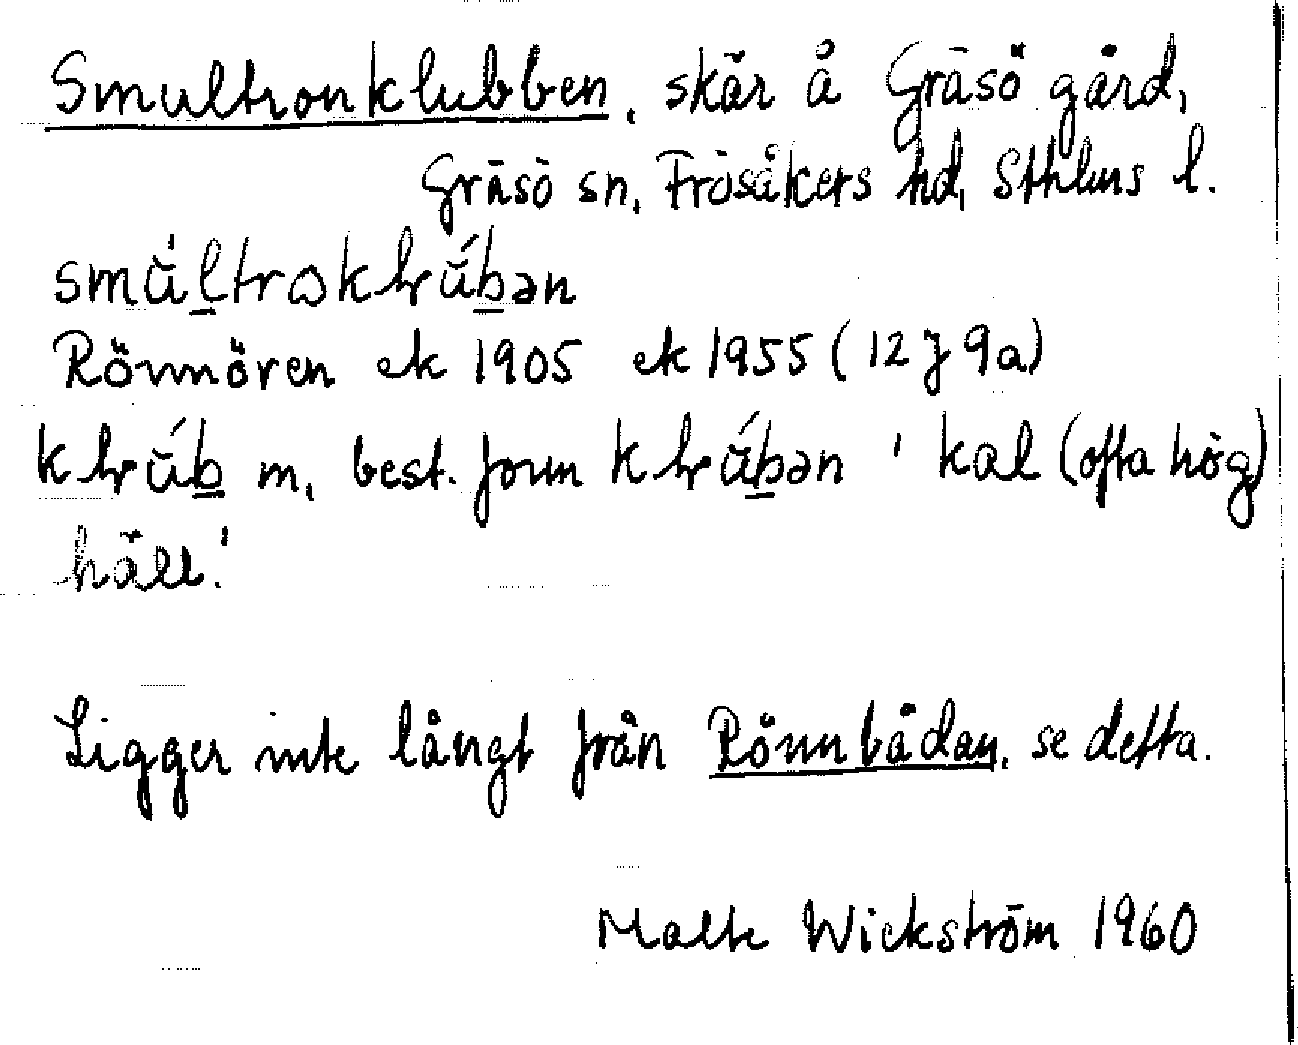 Smultronklubben, skär å Gräsö gård,
Gräsö sn, Frösåkers hd, Sthlms l.
Rönnören ek 1905 ek 1955 (12 J 9a)
m, best. form ' kal (ofta hög)
häll.'
Ligger inte långt från Rönnbådan, se detta.
Malte Wickström 1960